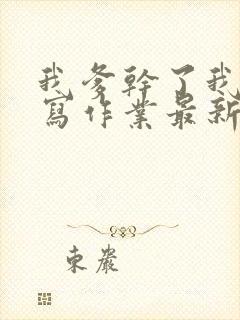 我爹幹了我
寫作業最新
東嚴